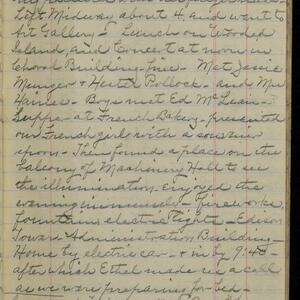 Left Midway about 4, and went to
Art Gallery - Lunch on Wooded
Island, and Concert at noon in
Choral Building - fine - Met Jessie
Munger & Hester Pollock - and Mrs
Hanie - Boys met Ed McLean -
Supper - at French Bakery - presented
our French girls with a souvenir
spoon - Then found a place on the
balcony of Machinery Hall to see
the illumination. Enjoyed the
evening immensely - fireworks,
fountains, electric lights - Edison
Tower Administration Building -
Home by electric car - & in by 9:45 -
after which Ethel made us a call
as we were preparing for bed -